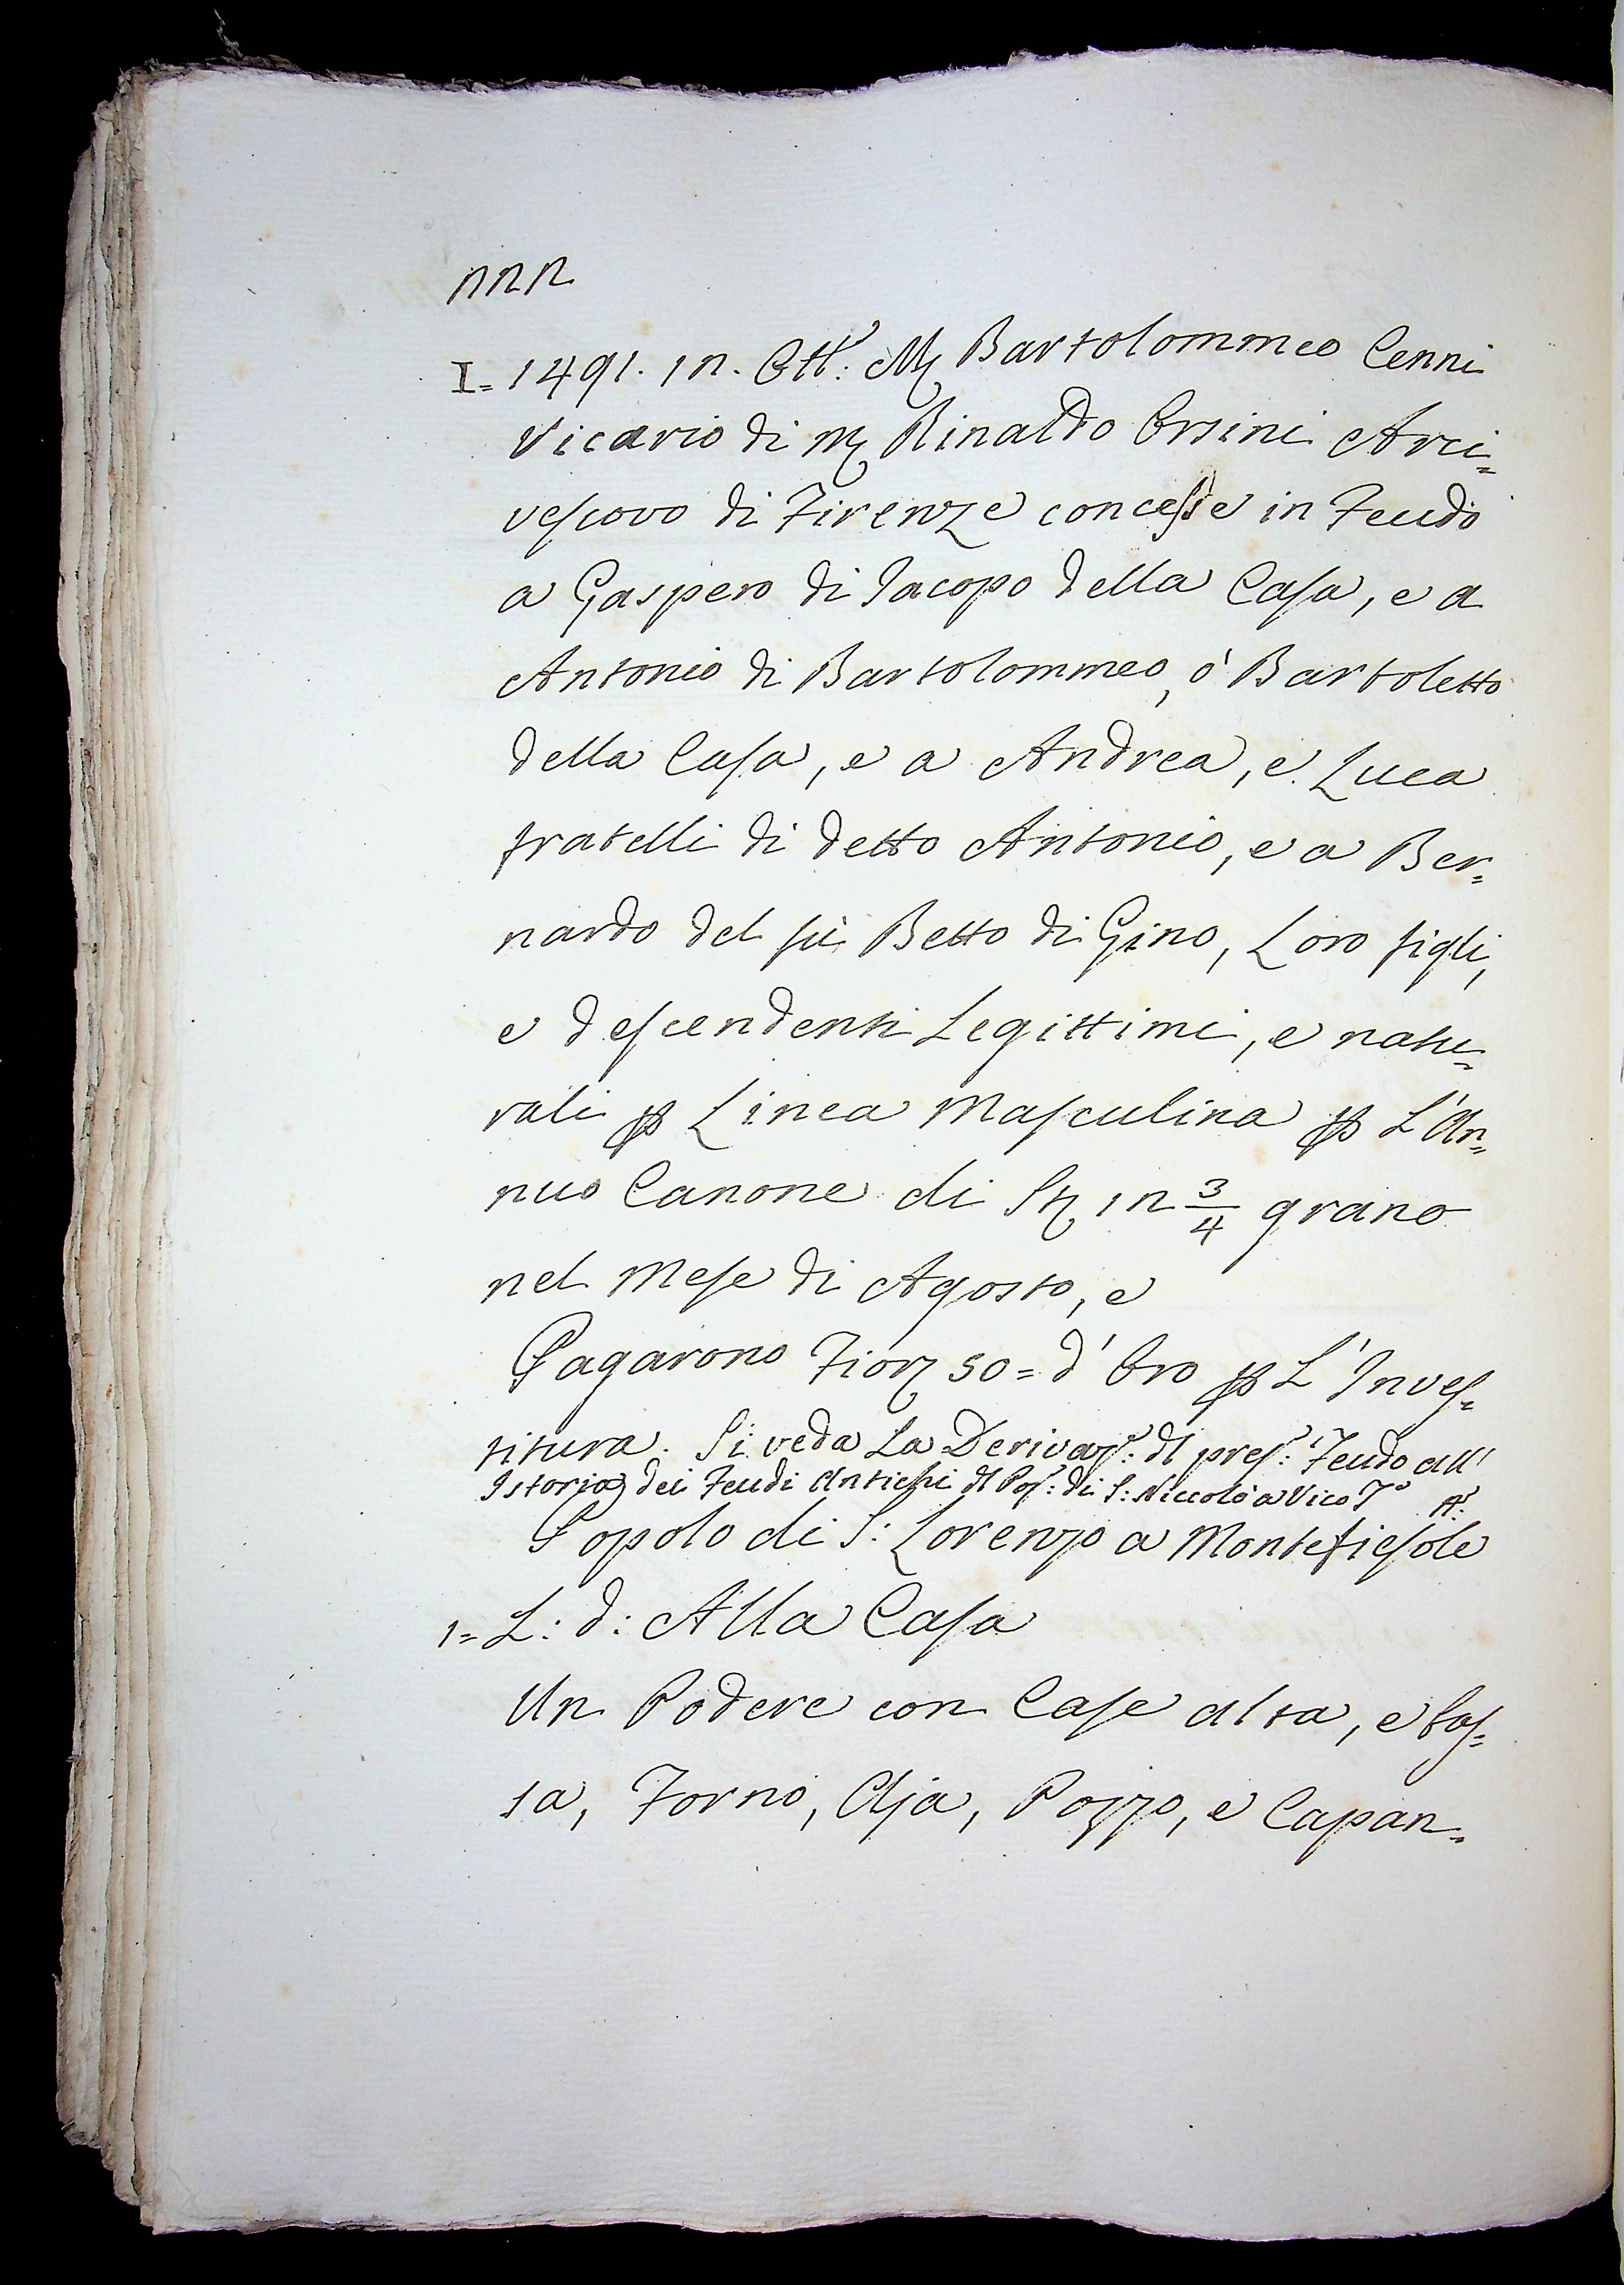 nnn
I= 1491. 1n. Ott.e: Mr Bartolommeo Cenni
Vicario di Mr Rinaldo Orsini Arci=
vescovo di Firenze concesse in Feudo
a Gaspero di Jacopo della Casa, e a
Antonio di Bartolommeo, ò Bartoletto
della Casa, e a Andrea, e Luca
fratelli di detto Antonio, e a Ber=
nardo del fù Betto di Gino, Loro figli,
e descendenti Legittimi, e natu=
rali p Linea Masculina p L'An=
nuo Canone di St 1n 3/4 grano
nel Mese di Agosto, e
Pagarono Fior 50= d'Oro p L'Inves=
titura. Si veda La Derivaz.e: dl pres.e: Feudo all'
Istoria dei Feudi Antichi dl Pop: di S: Niccolò a Vico
Popolo di S: Lorenzo a Montefiesole
1= L: d: Alla Casa
Un Podere con Case alta, e bas=
sa, Forno, Aja, Pozzo, e Capan=